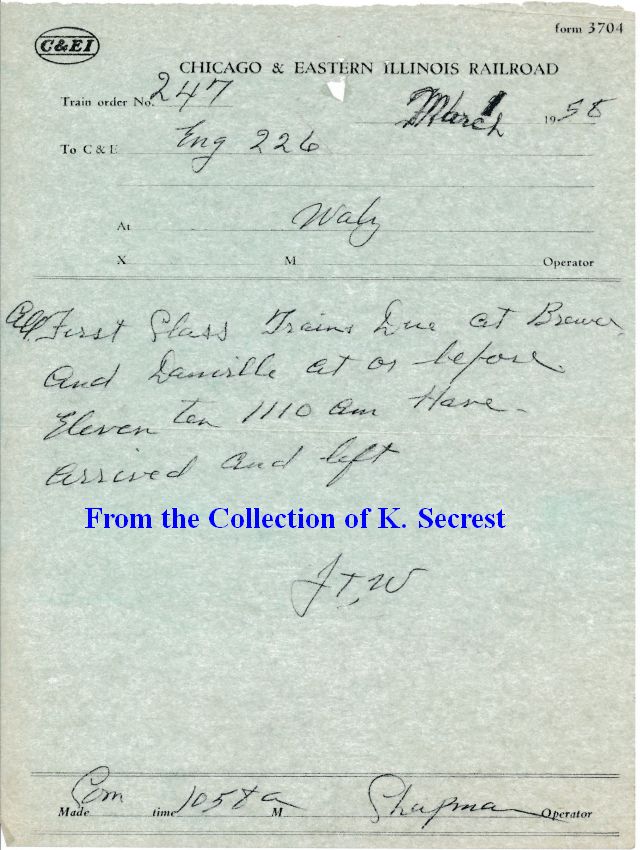 C&EI
form 3704
CHICAGO & EASTERN ILLINOIS RAILROAD
Train order No. 247
March 1 1958
To C & E Eng 226
At Waly
X M Operator
All First Class Trains Due at Brewer
and Danville at or before
Eleven ten 1110 am Have
arrived and left
From the Collection of K. Secrest
JTW
Made Com time 1058 a M Chapman Operator